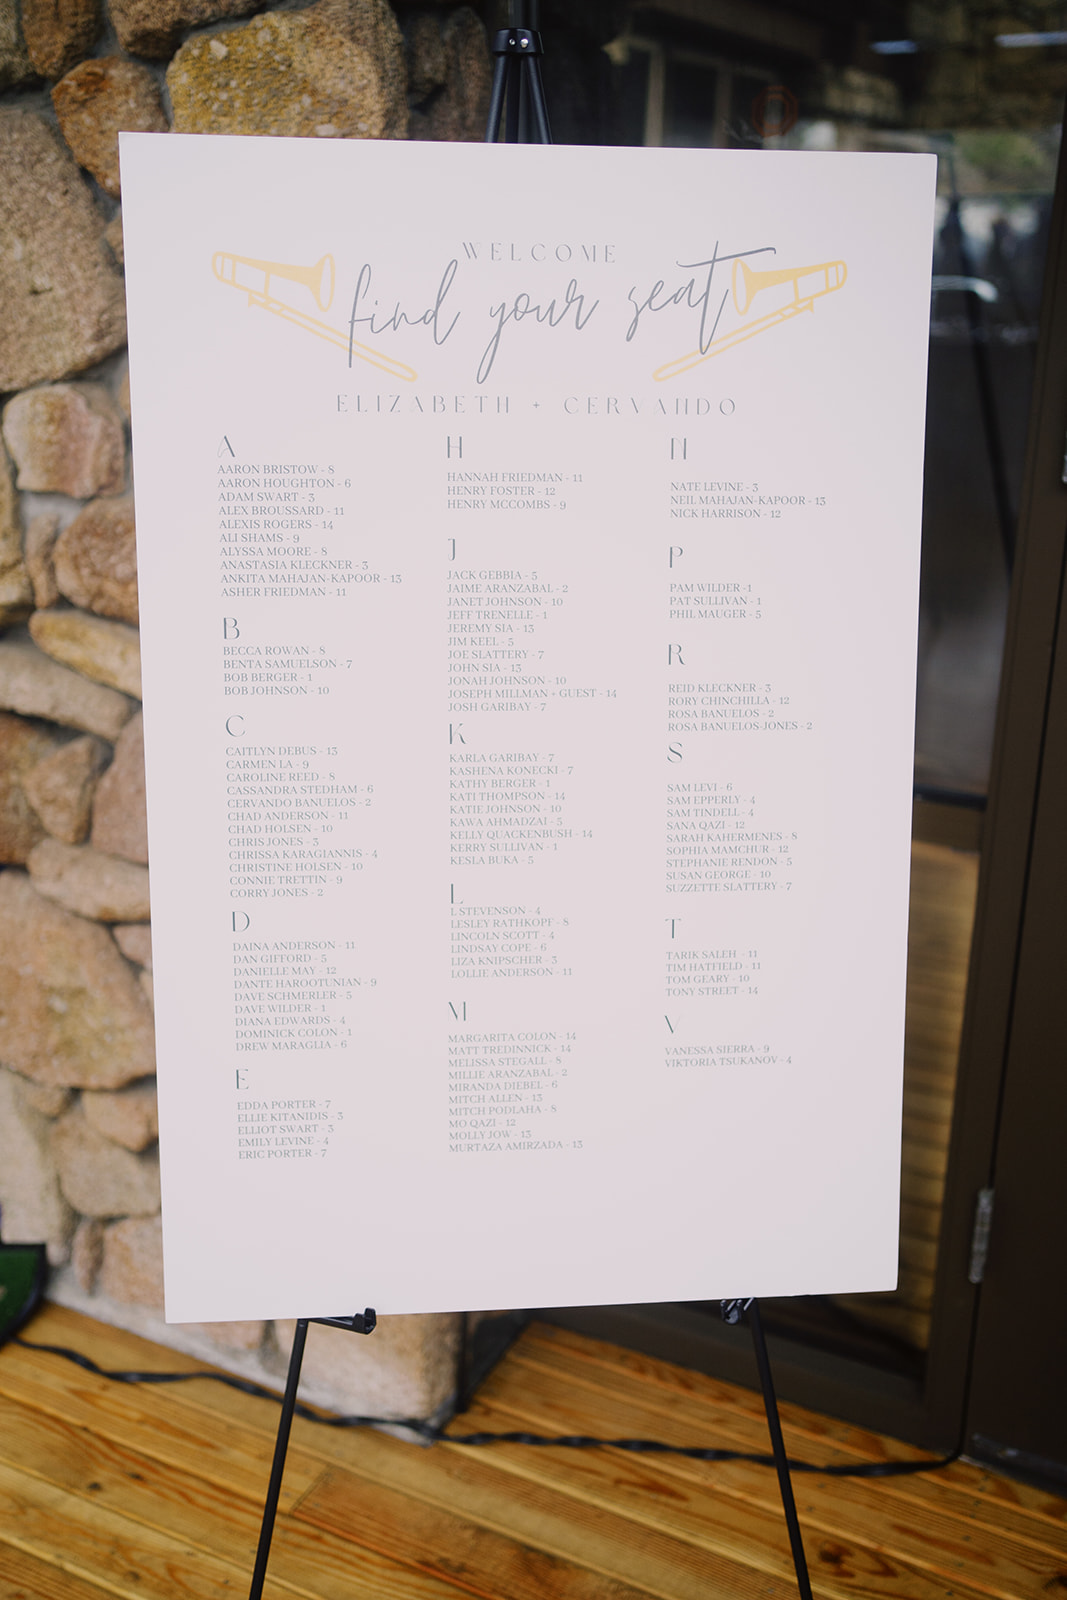 WELCOME
find your seat
ELIZABETH + CERVANDO
A
AARON BRISTOW - 8
AARON HOUGHTON - 6
ADAM SWART - 3
ALEX BROUSSARD - 11
ALEXIS ROGERS - 14
ALI SHAMS - 9
ALYSSA MOORE - 8
ANASTASIA KLECKNER - 3
ANKITA MAHAJAN-KAPOOR - 13
ASHER FRIEDMAN - 11
B
BECCA ROWAN - 8
BENTA SAMUELSON - 7
BOB BERGER - 1
BOB JOHNSON - 10
C
CAITLYN DEBUS - 13
CARMEN LA - 9
CAROLINE REED - 8
CASSANDRA STEDHAM - 6
CERVANDO BANUELOS - 2
CHAD ANDERSON - 11
CHAD HOLSEN - 10
CHRIS JONES - 3
CHRISSA KARAGIANNIS - 4
CHRISTINE HOLSEN - 10
CONNIE TRETTIN - 9
CORRY JONES - 2
D
DAINA ANDERSON - 11
DAN GIFFORD - 5
DANIELLE MAY - 12
DANTE HAROOTUNIAN - 9
DAVE SCHMERLER - 5
DAVE WILDER - 1
DIANA EDWARDS - 4
DOMINICK COLON - 1
DREW MARAGLIA - 6
E
EDDA PORTER - 7
ELLIE KITANIDIS - 3
ELLIOT SWART - 3
EMILY LEVINE - 4
ERIC PORTER - 7
H
HANNAH FRIEDMAN - 11
HENRY FOSTER - 12
HENRY MCCOMBS - 9
J
JACK GEBBIA - 5
JAIME ARANZABAL - 2
JANET JOHNSON - 10
JEFF TRENELLE - 1
JEREMY SIA - 13
JIM KEEL - 5
JOE SLATTERY - 7
JOHN SIA - 13
JONAH JOHNSON - 10
JOSEPH MILLMAN + GUEST - 14
JOSH GARIBAY - 7
K
KARLA GARIBAY - 7
KASHENA KONECKI - 7
KATHY BERGER - 1
KATI THOMPSON - 14
KATIE JOHNSON - 10
KAWA AHMADZAI - 5
KELLY QUACKENBUSH - 14
KERRY SULLIVAN - 1
KESLA BUKA - 5
L
L STEVENSON - 4
LESLEY RATHKOPF - 8
LINCOLN SCOTT - 4
LINDSAY COPE - 6
LIZA KNIPSCHER - 3
LOLLIE ANDERSON - 11
M
MARGARITA COLON - 14
MATT TREDINNICK - 14
MELISSA STEGALL - 8
MILLIE ARANZABAL - 2
MIRANDA DIEBEL - 6
MITCH ALLEN - 13
MITCH PODLAHA - 8
MO QAZI - 12
MOLLY JOW - 13
MURTAZA AMIRZADA - 13
N
NATE LEVINE - 3
NEIL MAHAJAN-KAPOOR - 13
NICK HARRISON - 12
P
PAM WILDER -1
PAT SULLIVAN - 1
PHIL MAUGER - 5
R
REID KLECKNER - 3
RORY CHINCHILLA - 12
ROSA BANUELOS - 2
ROSA BANUELOS-JONES - 2
S
SAM LEVI - 6
SAM EPPERLY - 4
SAM TINDELL - 4
SANA QAZI - 12
SARAH KAHERMENES - 8
SOPHIA MAMCHUR - 12
STEPHANIE RENDON - 5
SUSAN GEORGE - 10
SUZZETTE SLATTERY - 7
T
TARIK SALEH - 11
TIM HATFIELD - 11
TOM GEARY - 10
TONY STREET - 14
V
VANESSA SIERRA - 9
VIKTORIA TSUKANOV - 4